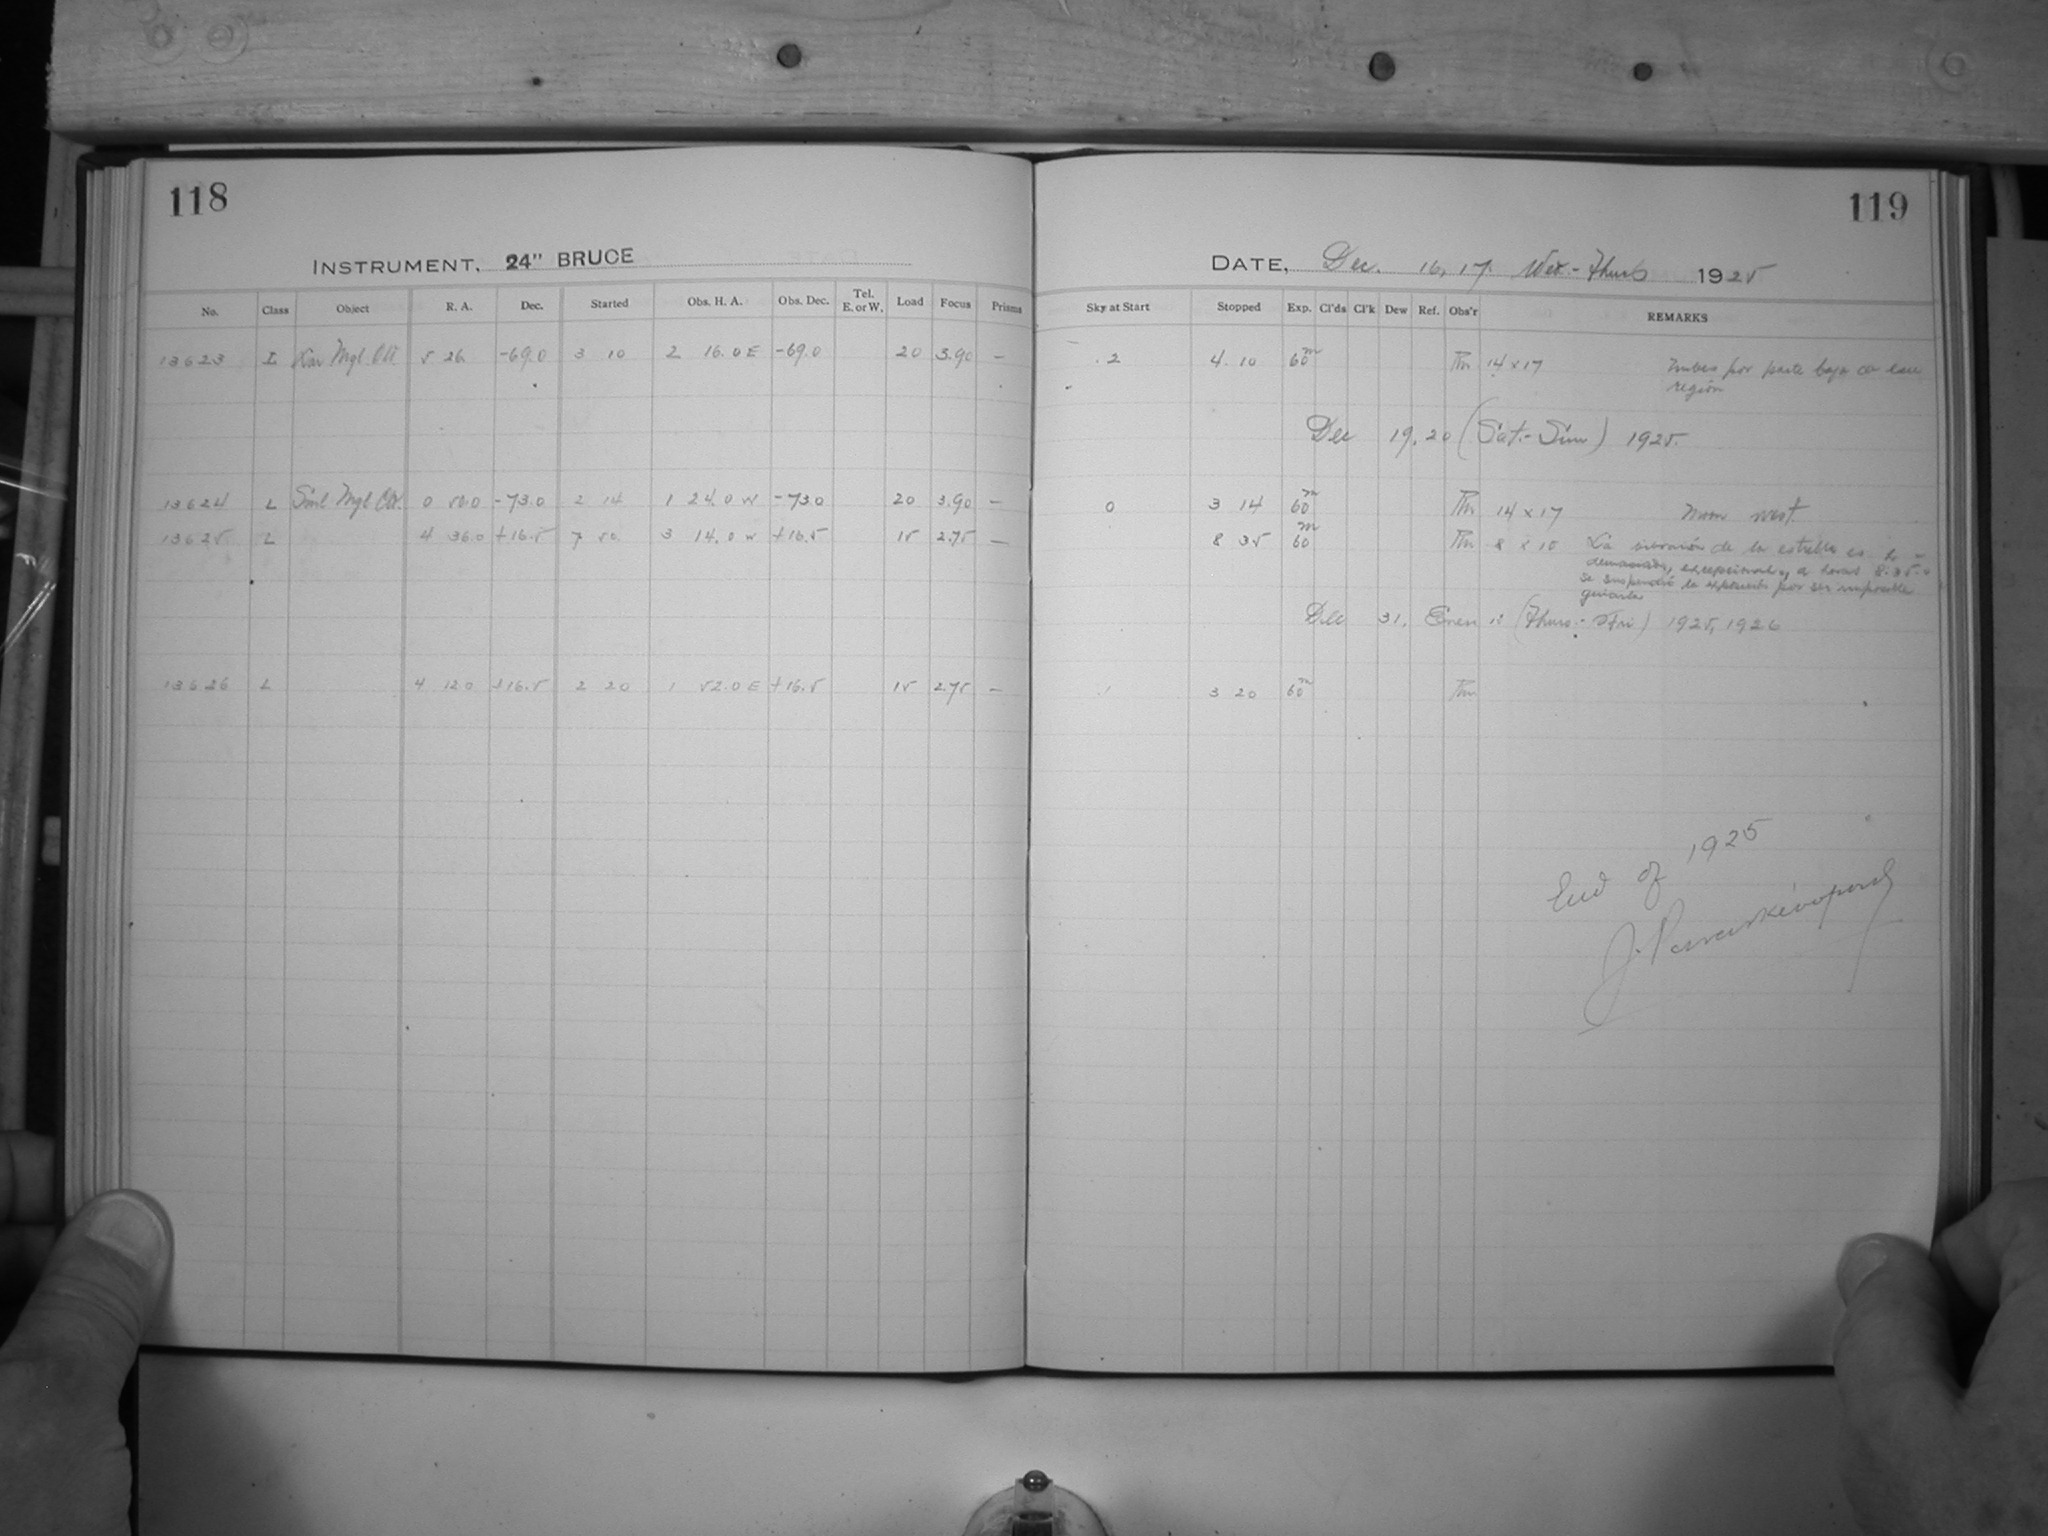 118
119
INSTRUMENT, 24" BRUCE
DATE, Dec. 16, 17. Wed.-Thurs 1925
No. Class Object R. A. Dec. Started Obs. H. A. Obs. Dec. Tel. E. or W. Load Focus Prisms Sky at Start Stopped Exp. Cl'ds Cl'k Dew Ref. Obs'r REMARKS
13623 I Lar Mgl. Cld 5 26 -69.0 3 10 2 16.0 E -69.0 20 3.90 — .2 4. 10 60m 14 x 17 nubes por parte baja
región
Dec 19, 20 (Sat.-Sun) 1925.
13624 L Sml. Mgl. Cld. 0 50.0 -73.0 2 14 1 24.0 W -73.0 20 3.90 — 0 3 14 60m 14 x 17 Moon west.
13625 L 4 36.0 +16.5 7 50 3 14.0 W +16.5 15 2.75 — 8 35 60m 8 x 10 La vibración de la estrella es
demasiado, excepcional, a horas 8.35.0
se suspendió la exposición por ser imposible
guiarla
Dec 31, Enero 1 (Thurs.-Fri) 1925, 1926
13626 L 4 12.0 +16.5 2 20 1 52.0 E +16.5 15 2.75 — 3 20 60m
End of 1925
J. Paraskévopoulos